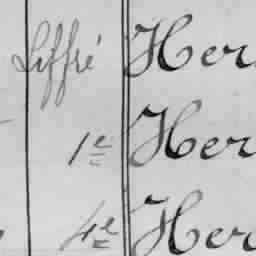 Liffré Her
1e Her
4e Her